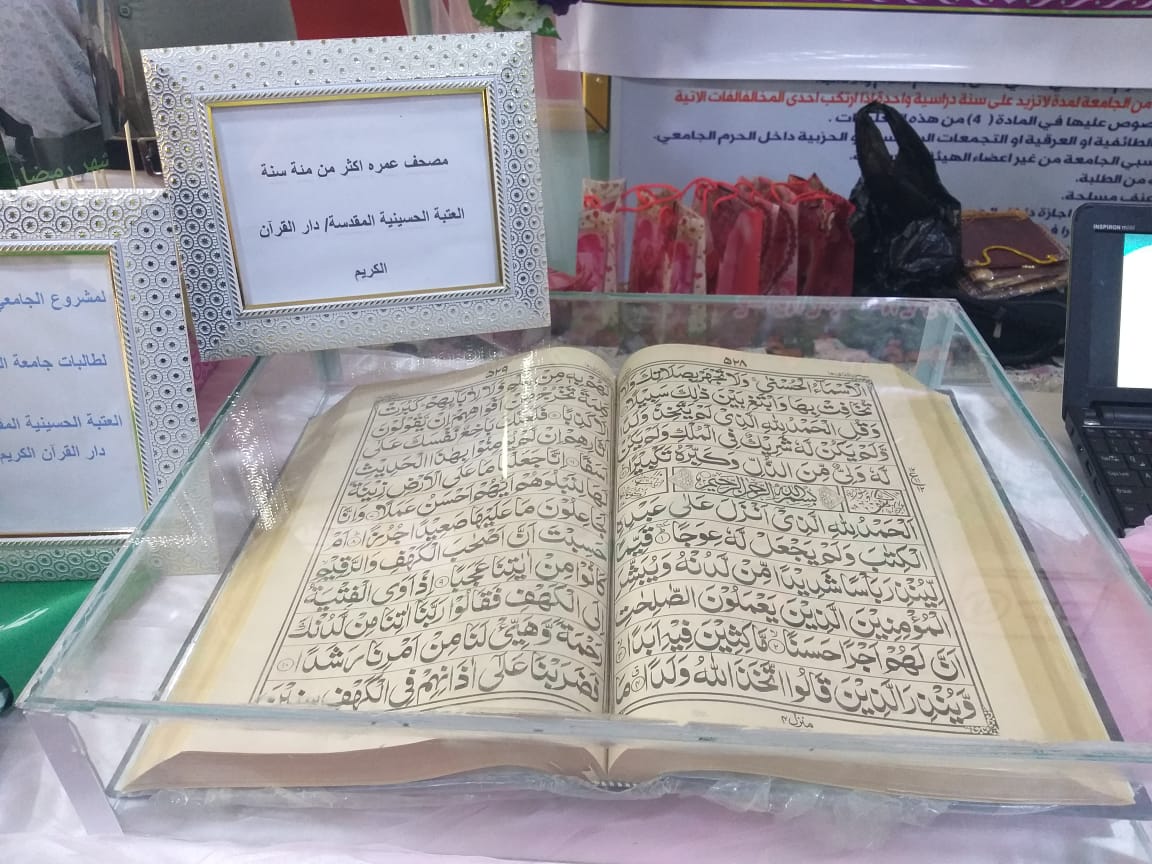 مصحف عمره اكثر من مئة سنة
العتبة الحسينية المقدسة/ دار القرآن
الكريم
لمشروع الجامعي
لطالبات جامعة
العتبة الحسينية
دار القرآن الكريم
من الجامعة لمدة لاتزيد على سنة دراسية واحدة اذا ارتكب احدى المخالفات الاتية
عليها في المادة ( 4) من هذه
الطائفية او العرقية او التجمعات الحزبية داخل الحرم الجامعي.
الجامعة من غير اعضاء
من الطلبة.
مسلحة.
INSPIRON mini
٥٢٨
الاسماء الحسنى ولا تجهر بصلاتك ولا
تخافت بها وابتغ بين ذلك سبيلا
وقل الحمد لله الذي لم يتخذ
ولم يكن له شريك في الملك ولم يكن
له ولي من الذل وكبره تكبيرا
بسم الله الرحمن الرحيم
الحمد لله الذي انزل على عبده
الكتب ولم يجعل له عوجا قيما
لينذر باسا شديدا من لدنه ويبشر
المؤمنين الذين يعملون الصلحت
ان لهم اجرا حسنا ماكثين فيه ابدا
وينذر الذين قالوا اتخذ الله ولدا ما
منزل ٤
٥٢٩
لهم به من ولا لابائهم كبرت
كلمة تخرج من افواههم ان يقولون
الا كذبا فلعلك باخع نفسك على
اثارهم ان لم يؤمنوا بهذا الحديث
اسفا انا جعلنا ما على الارض زينة
لها لنبلوهم ايهم احسن عملا وانا
لجاعلون ما عليها صعيدا جرزا ام
حسبت ان اصحب الكهف والرقيم
كانوا من ايتنا عجبا اذ اوى الفتية
الى الكهف فقالوا ربنا اتنا من لدنك
رحمة وهيئ لنا من امرنا رشدا
فضربنا على اذانهم في الكهف سنين